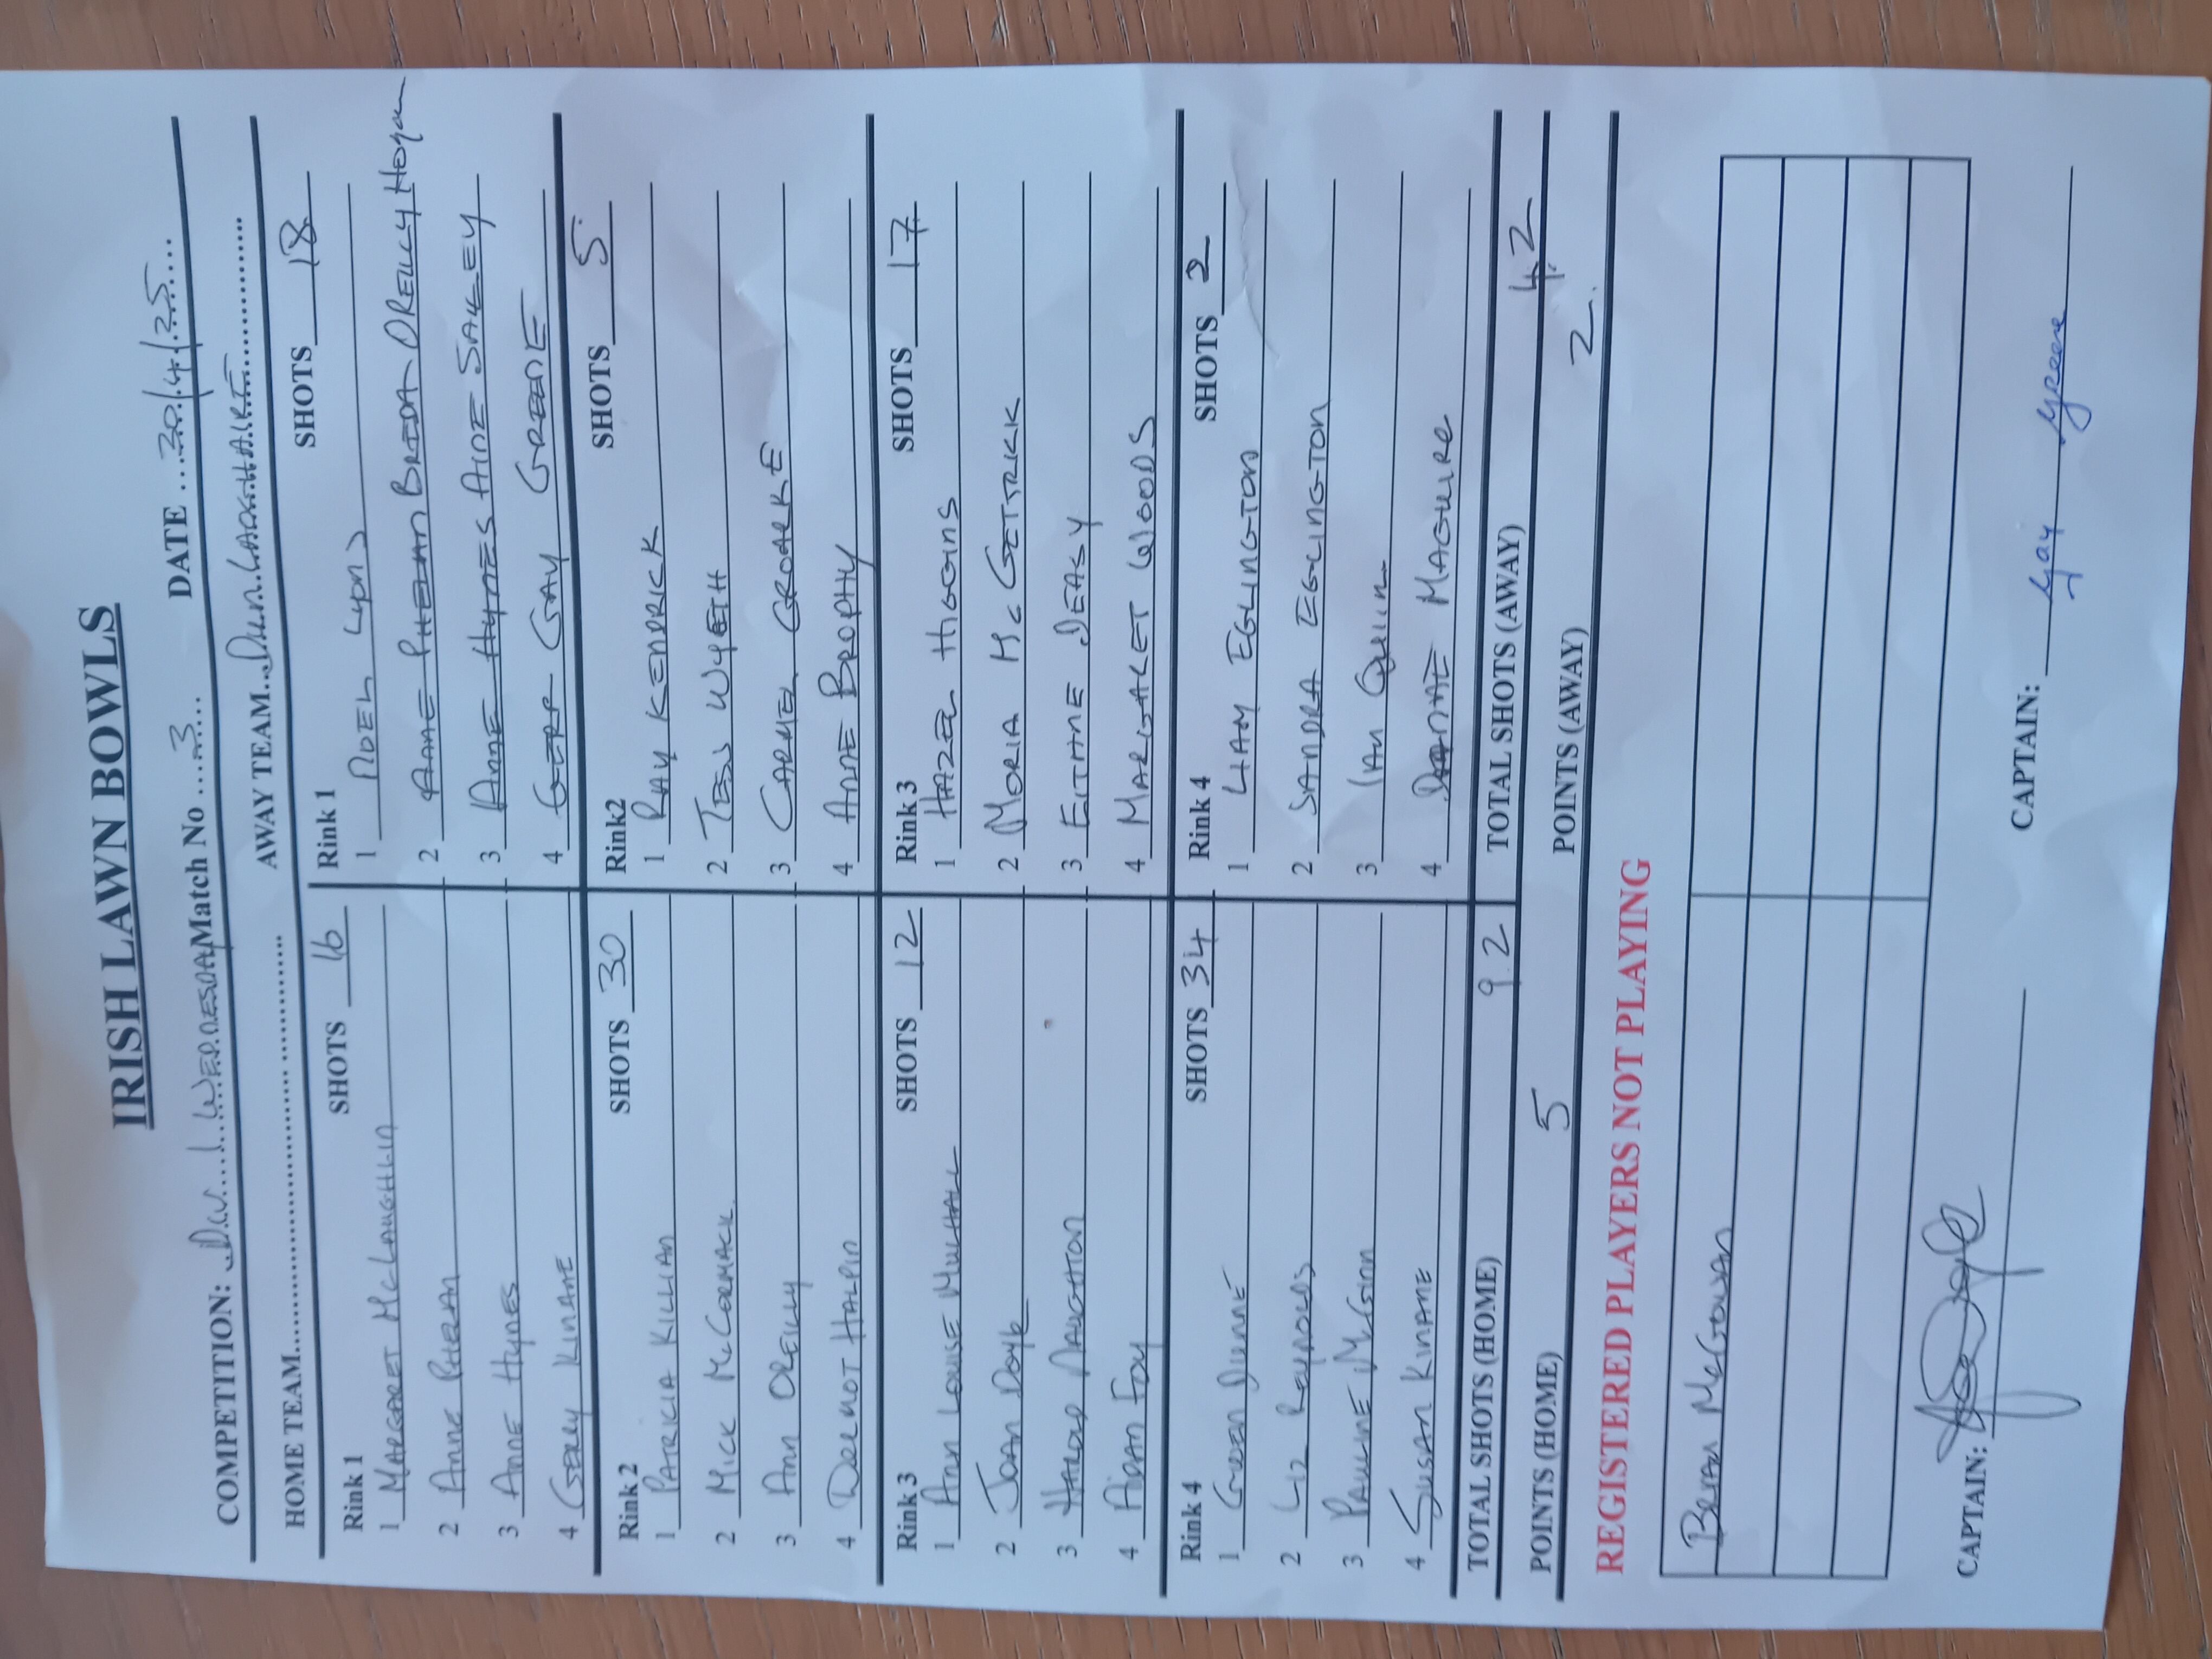 IRISH LAWN BOWLS
COMPETITION: Div 1 WEDNESDAY Match No 3 DATE 30/4/25
HOME TEAM AWAY TEAM Dun LAOGHAIRE
Rink 1 SHOTS 16
1 MARGARET McLAUGHLIN
2 Anne PHELAN
3 ANNE HYNES
4 GERRY KINANE
Rink 1 SHOTS 18
1 NOEL Lyons
2 ANNE PHELAN BREDA OREILLY Hogan
3 ANNE HYNES AINE SAVLEY
4 GERR GAY GREENE
Rink 2 SHOTS 30
1 PATRICIA KILLIAN
2 MICK McCORMACK
3 Ann OREILLY
4 DERMOT HALPIN
Rink2 SHOTS 5
1 RAY KENDRICK
2 TESS WYETH
3 CARMEL GROARKE
4 ANNE BROPHY
Rink 3 SHOTS 12
1 Ann LOUISE MULHALL
2 JOAN Doyle
3 HAROLD NAUGHTON
4 AIDAN FOY
Rink 3 SHOTS 17
1 HAZEL HIGGINS
2 MORIA McGETTRICK
3 EITHNE DEASY
4 MARGARET WOODS
Rink 4 SHOTS 34
1 GWEN DUNNE
2 LIZ REYNOLDS
3 PAULINE McGINN
4 SUSAN KINANE
Rink 4 SHOTS 2
1 LIAM EGLINGTON
2 SANDRA EGLINGTON
3 IAN QUINN
4 MAGUIRE
TOTAL SHOTS (HOME) 92 TOTAL SHOTS (AWAY) 42
POINTS (HOME) 5 POINTS (AWAY) 2
REGISTERED PLAYERS NOT PLAYING
BRIAN McGOWAN
CAPTAIN: CAPTAIN: Gay Greene